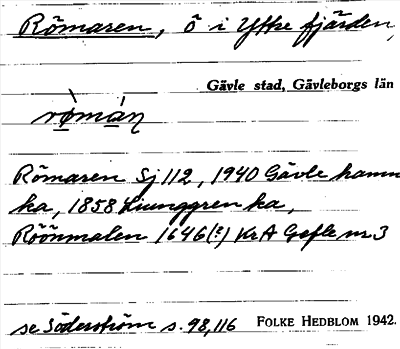 Römaren, ö i Yttre fjärden,
Gävle stad, Gävleborgs län
Römaren Sj 112, 1940 Gävle hamn
ka, 1858 Ljunggren ka,
Röönmalen 1646(?) Kr A Gefle nr 3
se Söderström s. 98, 116 FOLKE HEDBLOM 1942.